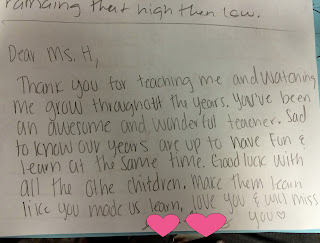 that high then low.
Dear Ms. H,
Thank you for teaching me and watching
me grow throughout the years. You've been
an awesome and wonderful teacher. Sad
to know our years are up to have fun &
learn at the same time. Good luck with
all the othe children. Make them learn
like you made us learn, love you & will miss
you ♡